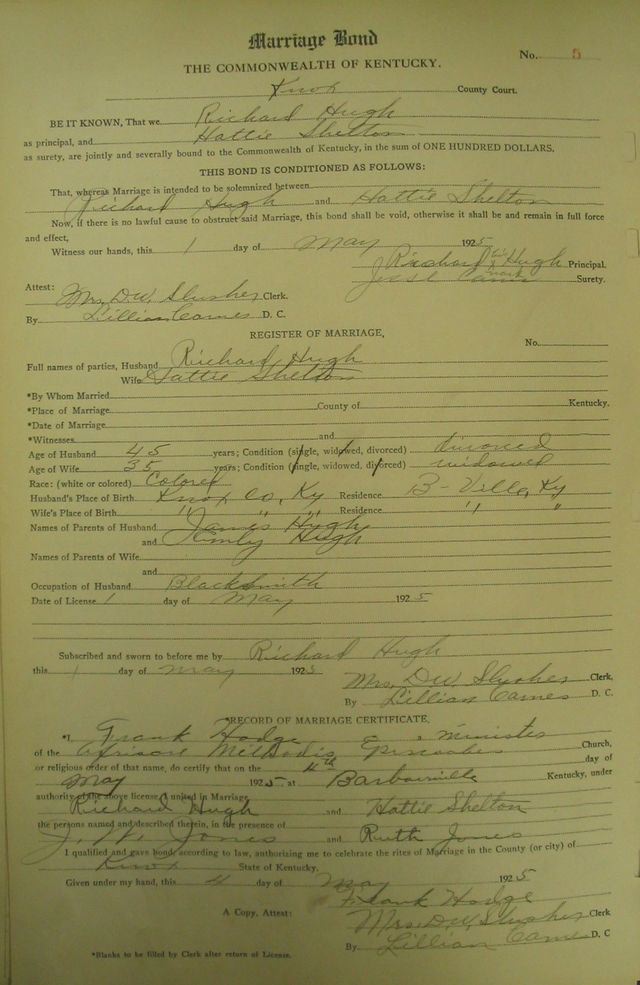 Marriage Bond
No. 5
THE COMMONWEALTH OF KENTUCKY.
Knox County Court.
BE IT KNOWN, That we Richard Hugh
as principal, and Hattie Shelton
as surety, are jointly and severally bound to the Commonwealth of Kentucky, in the sum of ONE HUNDRED DOLLARS.
THIS BOND IS CONDITIONED AS FOLLOWS:
That, whereas Marriage is intended to be solemnized between
Richard Hugh and Hattie Shelton
Now, if there is no lawful cause to obstruct said Marriage, this bond shall be void, otherwise it shall be and remain in full force
and effect,
Witness our hands, this 1 day of May 1925
Richard Hugh Principal.
mark
Surety.
Attest:
Mrs. D.W. Slusher Clerk.
By Lillian Carnes D. C.
REGISTER OF MARRIAGE,
No.
Full names of parties, Husband Richard Hugh
Wife Hattie Shelton
*By Whom Married
*Place of Marriage County of Kentucky.
*Date of Marriage
*Witnesses and
Age of Husband 45 years; Condition (single, widowed, divorced) divorced
Age of Wife 35 years; Condition (single, widowed, divorced) widowed
Race: (white or colored) Colored
Husband's Place of Birth Knox Co, Ky Residence B-Ville, Ky
Wife's Place of Birth " " " Residence " "
Names of Parents of Husband James Hugh
and Emly Hugh
Names of Parents of Wife
and
Occupation of Husband Blacksmith
Date of License 1 day of May 1925
Subscribed and sworn to before me by Richard Hugh
this 1 day of May 1925
Mrs. D.W. Slusher Clerk,
By Lillian Carnes D. C.
RECORD OF MARRIAGE CERTIFICATE.
*I, Frank Hodge a minister
of the Methodis Church,
or religious order of that name, do certify that on the 4th day of
May 1925 at Barbourville Kentucky, under
authority of the above license I united in Marriage
Richard Hugh and Hattie Shelton
the persons named and described therein, in the presence of
J. W. Jones and Ruth Jones
I qualified and gave bond, according to law, authorizing me to celebrate the rites of Marriage in the County (or city) of
Knox State of Kentucky.
Given under my hand, this 4 day of May 1925
Frank Hodge
A Copy. Attest: Mrs. D.W. Slusher Clerk
By Lillian Carnes D. C
*Blanks to be filled by Clerk after return of License.